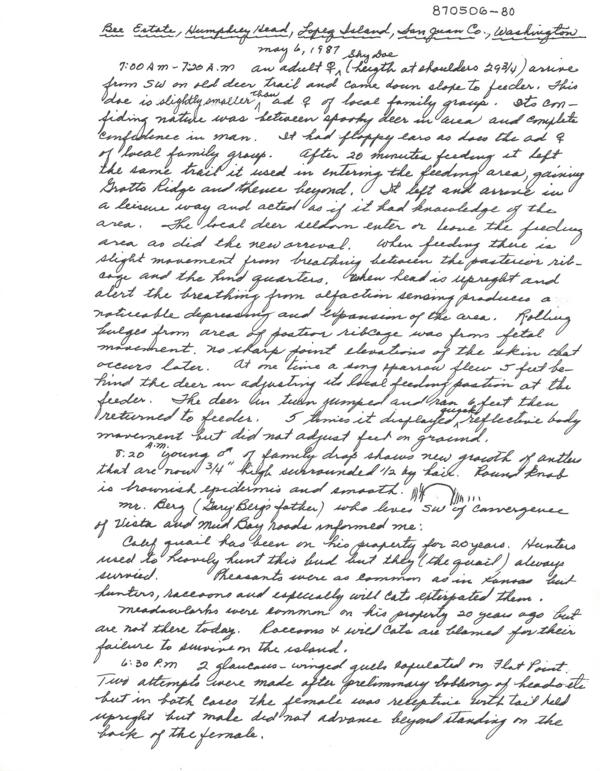 870506-80
Bee Estate, Humphrey Head, Lopez Island, San Juan Co., Washington
May 6, 1987
Shy Doe
7:00 AM - 7:20 A.M an adult ♀ (heigth at shoulders 29 3/4) arrive
from SW on old deer trail and came down slope to feeder. This
doe is slightly smaller than ad ♀ of local family group. Its con-
fiding nature was between spooky deer in area and complete
confidence in man. It had floppy ears as does the ad ♀
of local family group. After 20 minutes feeding it left
the same trail it used in entering the feeding area, gaining
Grotto Ridge and thence beyond. It left and arrove in
a leisure way and acted as if it had knowledge of the
area. The local deer seldom enter or leave the feeding
area as did the new arrival. When feeding there is
slight movement from breathing between the posterior rib-
cage and the hind quarters. When head is upright and
alert the breathing from olfaction sensing produces a
noticeable depressing and expansion of the area. Rolling
bulges from area of postior ribcage was from fetal
movement. no sharp point elevations of the skin that
occurs later. At one time a song sparrow flew 5 feet be-
hind the deer in adjusting its local feeding position at the
feeder. The deer in turn jumped and ran 6 feet then
returned to feeder. 5 times it displayed quick reflective body
movement but did not adjust feet on ground.
8:20 A.M. young ♂ of family drop shows new growth of antlers
that are now 3/4" high surrounded 1/2 by hair. Round knob
is brownish epidermis and smooth.
Mr. Berg (Gary Berg's father) who lives SW of convergence
of Vista and Mud Bay roads informed me:
Calif quail has been on his property for 20 years. Hunters
used to heavily hunt this bird but they (the quail) always
survied. Pheasants were as common as in Kansas but
hunters, raccoons and especially wild cats extirpated them.
Meadowlarks were common on his property 20 years ago but
are not there today. Raccoons & wild cats are blamed for their
failure to survive on the island.
6:30 P.M 2 glaucous-winged gulls copulated on Flat Point.
Two attempts were made after preliminary bobbing of heads etc
but in both cases the female was receptive with tail held
upright but male did not advance beyond standing on the
back of the female.